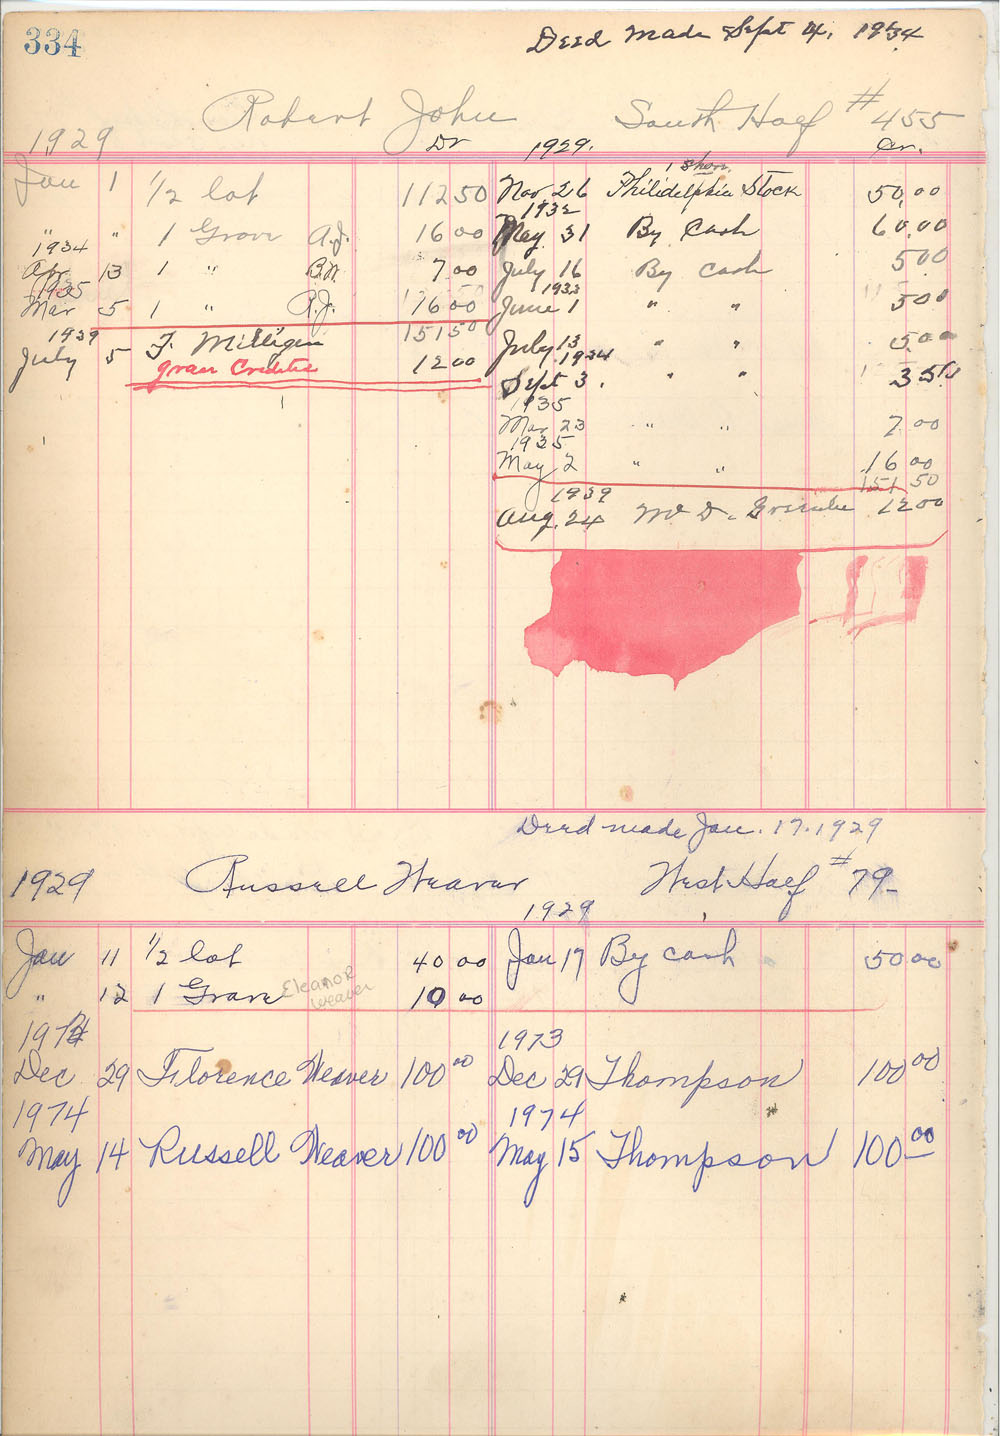 334
Deed Made Sept 4, 1934
Robert John South Half # 455
1929 Dr 1929. Cr.
Jan 1 1/2 lot 112 50
" " 1 Grave R.J. 16 00
1934
Apr 13 1 " 7 00
1935
Mar 5 1 " R.J. 16 00
151 50
1939
July 5 F. Milligan 12 00
Grave
1 Share
Nov 26 Philidelphia Stock 50,00
1932
May 31 By Cash 60.00
July 16 By cash 5 00
1933
June 1 " " 5 00
July 13 " " 5.00
1934
Sept 3. " " 3 50
1935
Mar 23 " " 7.00
1935
May 2 " " 16 00
151 50
1939
Aug. 24 12 00
Deed made Jan. 17. 1929
1929 Russell Weaver West Half # 79-
1929
Jan 11 1/2 lot 40 00 Jan 17 By cash 50 00
" 12 1 Grave Eleanor Weaver 10 00
1973
Dec 29 Florence Weaver 100 00 Dec 29 Thompson 100 00
1974 1974
May 14 Russell Weaver 100 00 May 15 Thompson 100 00